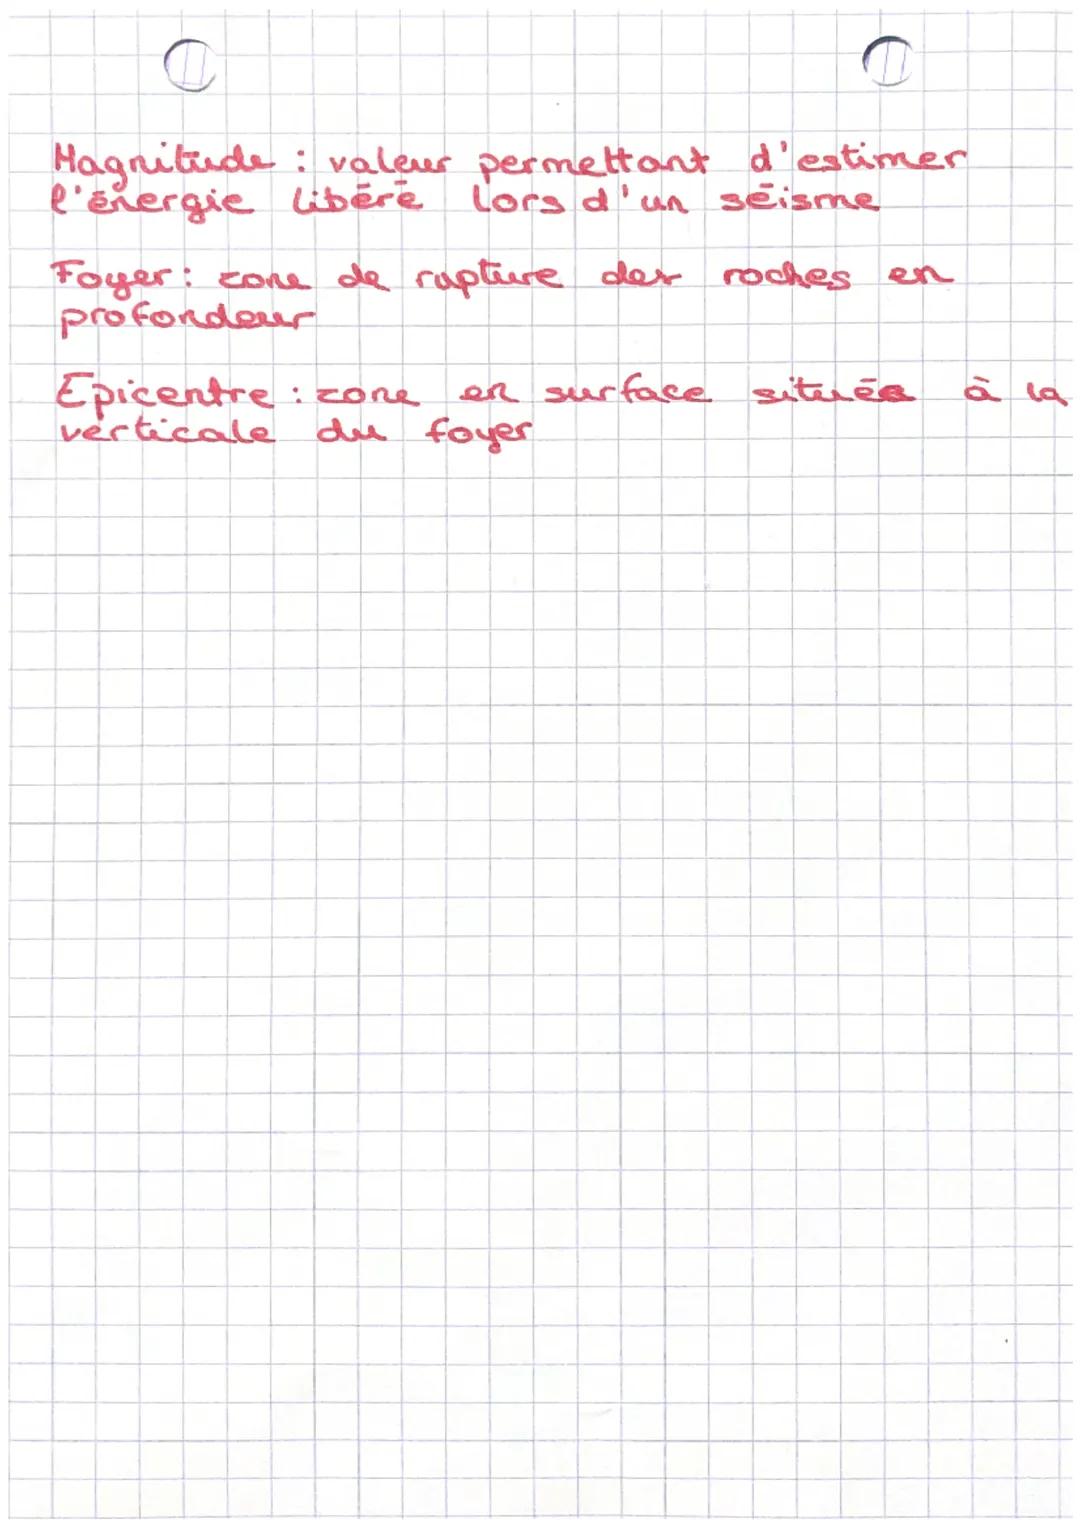 Magnitude : valeur permettant d'estimer
l'énergie libéré lors d'un séisme
Foyer : zone de rupture des roches en
profondeur
Epicentre : zone en surface située à la
verticale du foyer